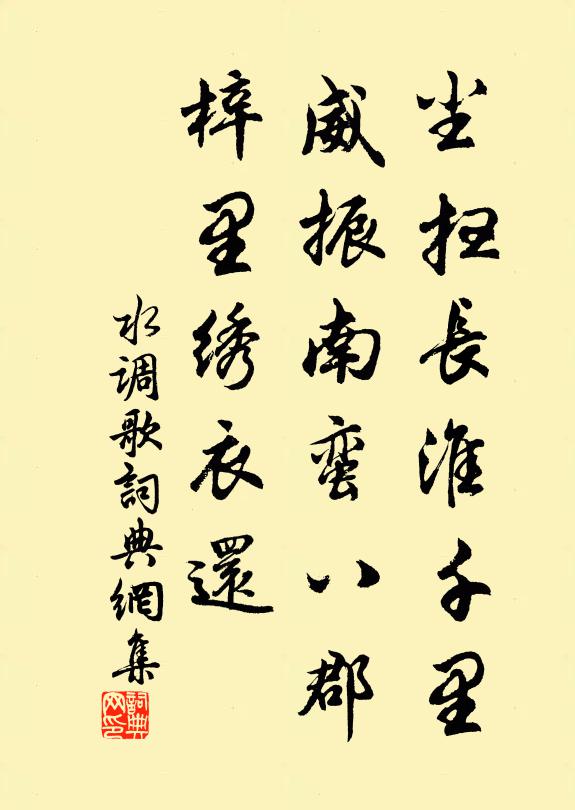 尘扫長淮千里
威振南蛮八郡
梓里绣衣還
水调歌詞典網集
詞典网印